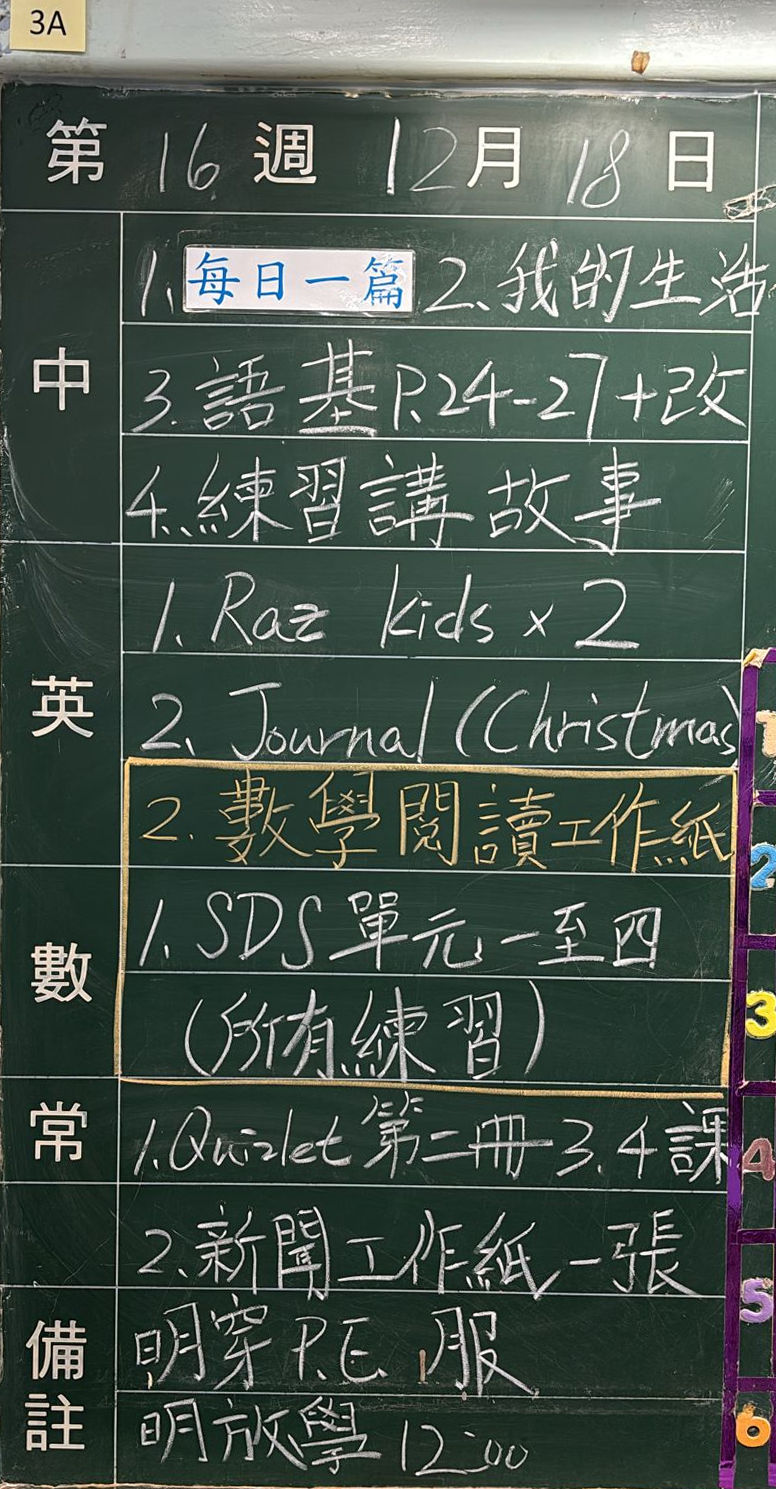 3A
第 16 週 12 月 18 日
中
1. 每日一篇 2. 我的生活
3. 語基 P.24-27+改
4. 練習講故事
英
1. Raz kids x 2
2. Journal (Christmas)
2. 數學閱讀工作紙
數
1. SDS 單元一至四
(所有練習)
常
1. Quizlet 第二冊 3.4 課
2. 新聞工作紙一張
備註
明穿 P.E. 服
明放學 12:00
1
2
3
4
5
6